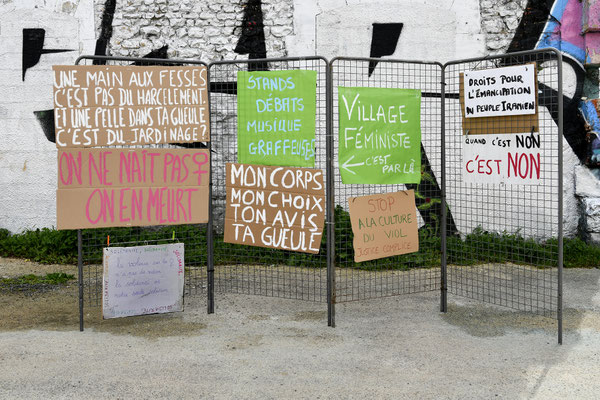 UNE MAIN AUX FESSES
C'EST PAS DU HARCÈLEMENT.
ET UNE PELLE DANS TA GUEULE
C'EST DU JARDINAGE?
ON NE NAIT PAS ♀
ON EN MEURT
STANDS
DÉBATS
MUSIQUE
GRAFFEUSES
MON CORPS
MON CHOIX
TON AVIS
TA GUEULE
VILLAGE
FÉMINISTE
← C'EST PAR LÀ
STOP
A LA CULTURE
DU VIOL
JUSTICE COMPLICE
DROITS POUR
L'ÉMANCIPATION
DU PEUPLE IRANIEN
QUAND C'EST NON
C'EST NON